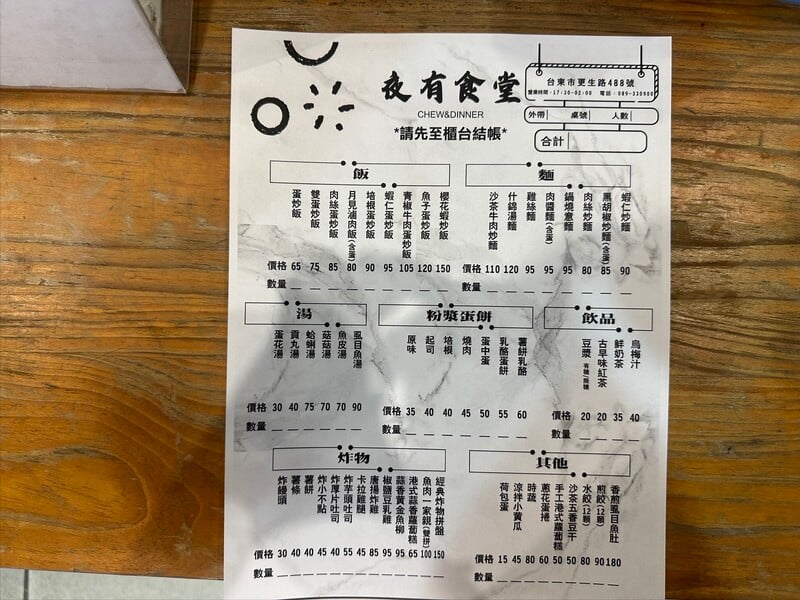 夜有食堂
CHEW&DINNER
*請先至櫃台結帳*
台東市更生路488號
營業時間：17:30-02:00 電話：089-330900
外帶 桌號 人數
合計
飯
蛋炒飯
雙蛋炒飯
肉絲蛋炒飯
月見滷肉飯(含蛋)
培根蛋炒飯
蝦仁蛋炒飯
青椒牛肉蛋炒飯
魚子蛋炒飯
櫻花蝦炒飯
價格 65 75 85 80 90 95 105 120 150
數量
麵
沙茶牛肉炒麵
什錦湯麵
雞絲麵
肉醬麵(含蛋)
鍋燒意麵
肉絲炒麵
黑胡椒炒麵(含蛋)
蝦仁炒麵
價格 110 120 95 95 95 80 85 90
數量
湯
蛋花湯
貢丸湯
蛤蜊湯
菇菇湯
魚皮湯
虱目魚湯
價格 30 40 75 70 70 90
數量
粉漿蛋餅
原味
起司
培根
燒肉
蛋中蛋
乳酪蛋餅
薯餅乳酪
價格 35 40 40 45 50 55 60
數量
飲品
豆漿 有糖/無糖
古早味紅茶
鮮奶茶
烏梅汁
價格 20 20 35 40
數量
炸物
炸饅頭
薯條
薯餅
炸小不點
炸厚片吐司
炸芋頭吐司
卡拉雞腿
唐揚炸雞
椒鹽豆乳雞
蒜香黃金魚柳
港式蒜香蘿蔔糕
魚肉一家親(雙拼)
經典炸物拼盤
價格 30 40 40 45 40 55 45 85 95 95 65 100 150
數量
其他
荷包蛋
涼拌小黃瓜
時蔬
蔥花蛋捲
手工港式蘿蔔糕
沙茶五香豆干
水餃(12顆)
煎餃(12顆)
香煎虱目魚肚
價格 15 45 80 60 50 50 80 90 180
數量